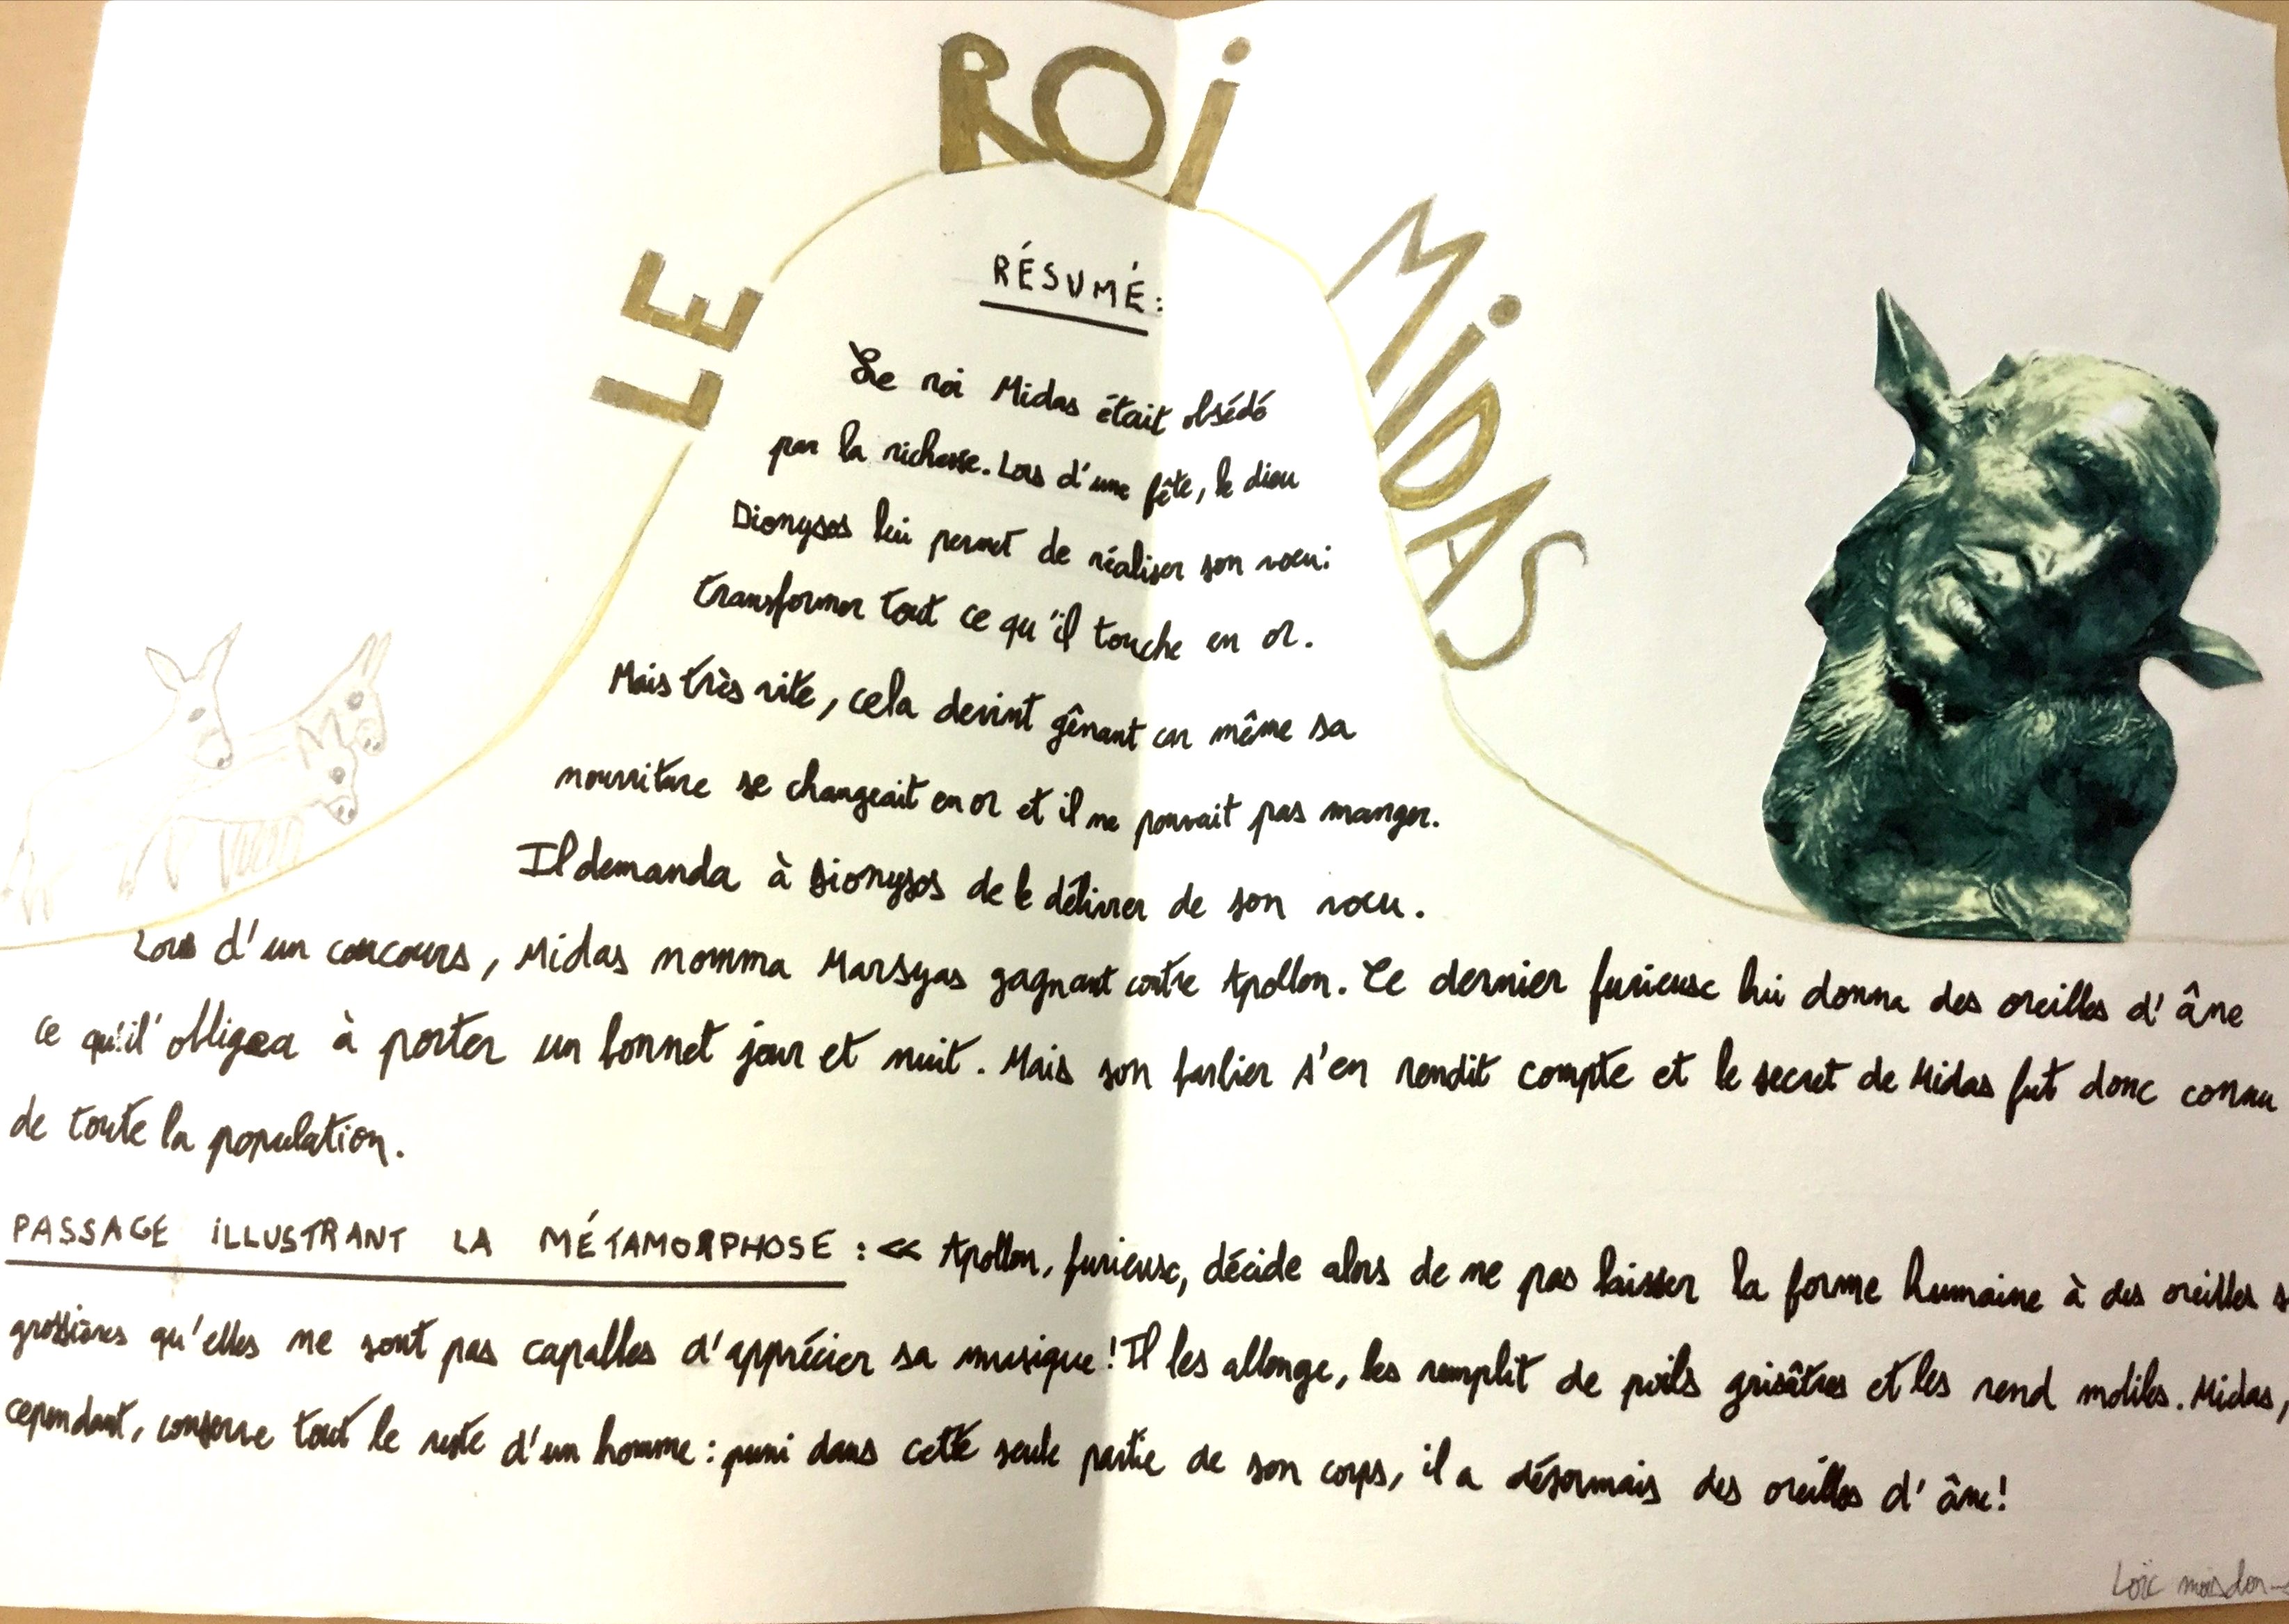 LE ROi MiDAS
RÉSUMÉ:
Le roi Midas était obsédé
par la richesse. Lors d'une fête, le dieu
Dionysos lui permet de réaliser son voeu:
transformer tout ce qu'il touche en or.
Mais très vite, cela devint gênant car même sa
nourriture se changeait en or et il ne pouvait pas manger.
Il demanda à Dionysos de le délivrer de son voeu.
Lors d'un concours, Midas nomma Marsyas gagnant contre Apollon. Ce dernier furieuse lui donna des oreilles d'âne
ce qu'il obligea à porter un bonnet jour et nuit. Mais son barbier s'en rendit compte et le secret de Midas fut donc connu
de toute la population.
PASSAGE iLLUSTRANT LA MÉTAMORPHOSE : << Apollon, furieuse, décide alors de ne pas laisser la forme humaine à des oreilles s
grossières qu'elles ne sont pas capables d'apprécier sa musique! Il les allonge, les remplit de poils grisâtres et les rend mobiles. Midas,
cependant, conserve tout le reste d'un homme : puni dans cette seule partie de son corps, il a désormais des oreilles d'âne!
Loïc